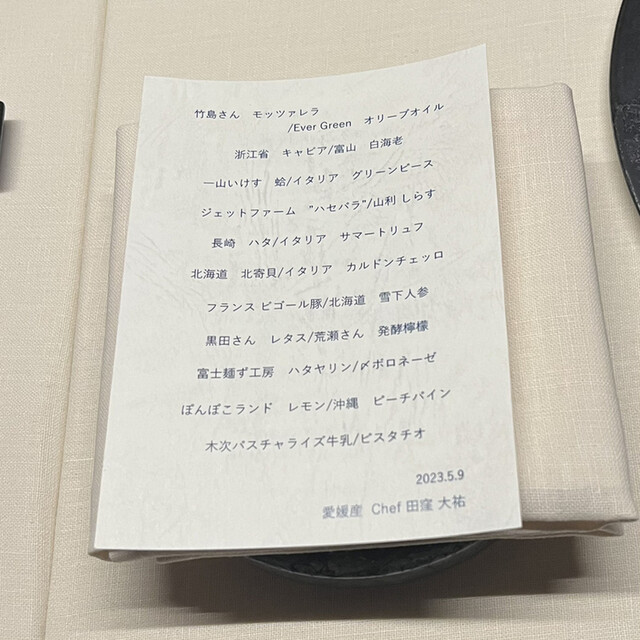 竹島さん　モッツァレラ
/Ever Green　オリーブオイル
浙江省　キャビア/富山　白海老
一山いけす　蛤/イタリア　グリーンピース
ジェットファーム　"ハセパラ"/山利 しらす
長崎　ハタ/イタリア　サマートリュフ
北海道　北寄貝/イタリア　カルドンチェッロ
フランス ビゴール豚/北海道　雪下人参
黒田さん　レタス/荒瀬さん　発酵檸檬
富士麺ず工房　ハタヤリン/〆ボロネーゼ
ぽんぽこランド　レモン/沖縄　ピーチパイン
木次パスチャライズ牛乳/ピスタチオ
2023.5.9
愛媛産　Chef 田窪 大祐